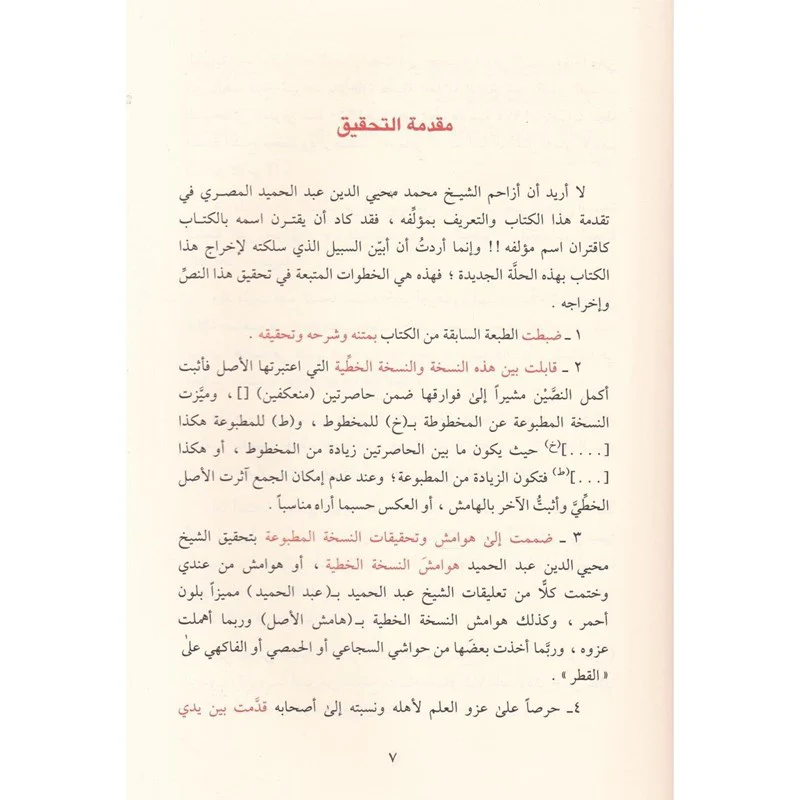 مقدمة التحقيق
لا أريد أن أزاحم الشيخ محمد محيي الدين عبد الحميد المصري في
تقدمة هذا الكتاب والتعريف بمؤلِّفه ، فقد كاد أن يقترن اسمه بالكتاب
كاقتران اسم مؤلفه !! وإنما أردتُ أن أبيّن السبيل الذي سلكته لإخراج هذا
الكتاب بهذه الحلَّة الجديدة ؛ فهذه هي الخطوات المتبعة في تحقيق هذا النصِّ
وإخراجه .
١ ـ ضبطت الطبعة السابقة من الكتاب بمتنه وشرحه وتحقيقه .
٢ ـ قابلت بين هذه النسخة والنسخة الخطِّية التي اعتبرتها الأصل فأثبت
أكمل النصَّيْن مشيراً إلىٰ فوارقها ضمن حاصرتين (منعكفين) [] ، وميَّزت
النسخة المطبوعة عن المخطوطة بـ(خ) للمخطوط ، و(ط) للمطبوعة هكذا
[....](خ) حيث يكون ما بين الحاصرتين زيادة من المخطوط ، أو هكذا
[...](ط) فتكون الزيادة من المطبوعة ؛ وعند عدم إمكان الجمع آثرت الأصل
الخطِّيَّ وأثبتُّ الآخر بالهامش ، أو العكس حسبما أراه مناسباً .
٣ ـ ضممت إلىٰ هوامش وتحقيقات النسخة المطبوعة بتحقيق الشيخ
محيي الدين عبد الحميد هوامشَ النسخة الخطية ، أو هوامش من عندي
وختمت كلًّا من تعليقات الشيخ عبد الحميد بـ(عبد الحميد) مميزاً بلون
أحمر ، وكذلك هوامش النسخة الخطية بـ(هامش الأصل) وربما أهملت
عزوه ، وربَّما أخذت بعضَها من حواشي السجاعي أو الحمصي أو الفاكهي علىٰ
« القطر » .
٤ـ حرصاً علىٰ عزو العلم لأهله ونسبته إلىٰ أصحابه قدَّمت بين يدي
٧